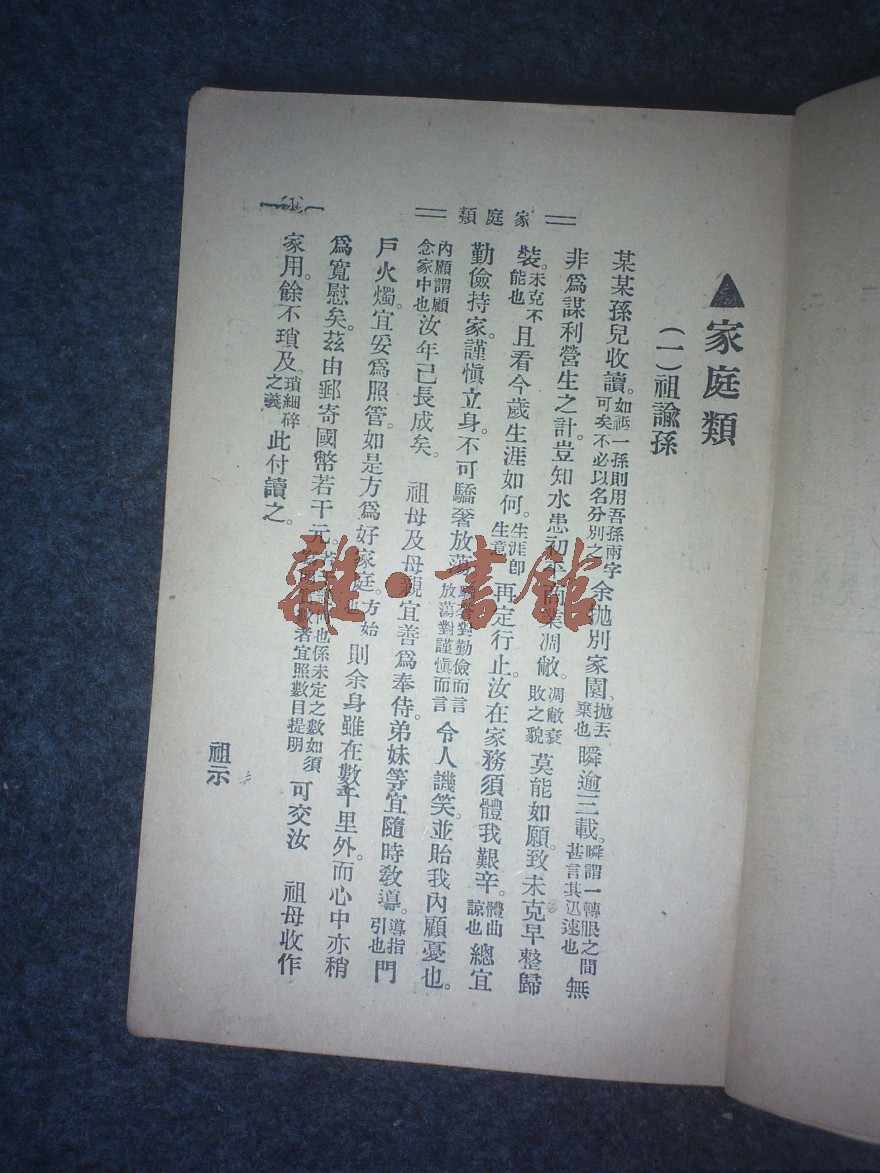 家庭類
(1)
▲家庭類
(一)祖諭孫
某某孫兒收讀。如祇一孫則用吾孫兩字可矣不必以名分別之余拋別家園、拋丟棄也瞬逾三載。瞬謂一轉眼之間甚言其迅速也無
非爲謀利營生之計豈知水患初商業凋敝。凋敝衰敗之貌莫能如願。致未克早整歸
裝。未克不能也且看今歲生涯如何。生涯卽生意再定行止。汝在家務須體我艱辛。體曲諒也總宜
勤儉持家。謹愼立身。不可驕奢放蕩對勤儉而言放蕩對謹愼而言令人譏笑。並貽我內顧憂也。
內顧謂顧念家中也汝年已長成矣。祖母及母親宜善爲奉侍。弟妹等宜隨時敎導。導指引也門
戶火燭。宜妥爲照管。如是方爲好家庭。方始則余身雖在數千里外。而心中亦稍
爲寬慰矣。茲由郵寄國幣若干元。也係未定之數如須者宜照數目提明可交汝 祖母收作
家用。餘不瑣及。瑣細碎之義此付讀之。
祖示
雜·書館